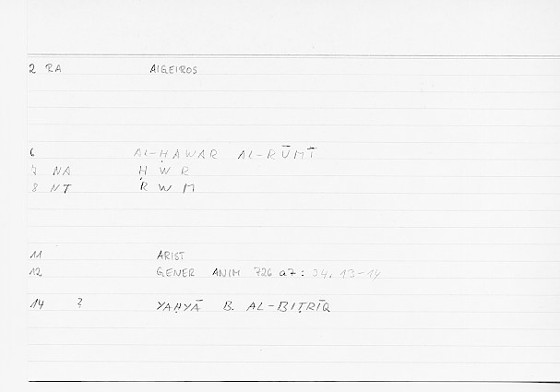 2 RA AIGEIROS
6 AL-ḤAWAR AL-RŪMĪ
7 NA Ḥ W R
8 NT R W M
11 ARIST
12 GENER ANIM 726 a7: 34, 13-14
14 YAḤYĀ B. AL-BIṬRĪQ